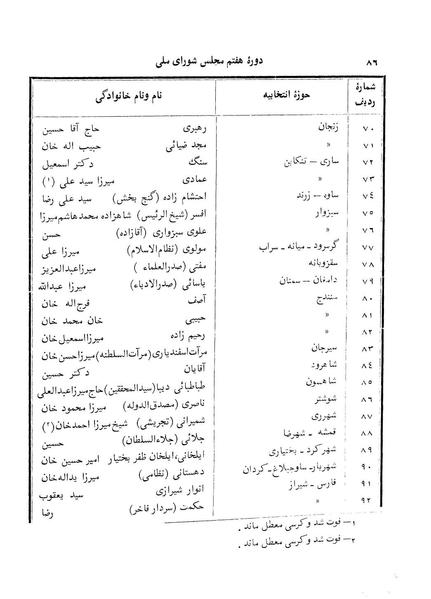 ۸۶ دورهٔ هفتم مجلس شورای ملی
شمارهٔ ردیف حوزهٔ انتخابیه نام ونام خانوادگی
۷۰ زنجان رهبری حاج آقا حسین
۷۱ » مجد ضیائی حبیب اله خان
۷۲ ساری – تنکابن سنگ دکتر اسمعیل
۷۳ » عمادی میرزا سید علی (۱)
۷۴ ساوه – زرند احتشام زاده (گنج بخش) سید علی رضا
۷۵ سبزوار افسر (شیخ الرئیسی) شاهزاده محمدهاشم میرزا
۷۶ » علوی سبزواری (آقازاده) حسن
۷۷ گرمرود – میانه – سراب مولوی (نظام‌الاسلام) میرزا علی
۷۸ سقزوبانه مفتی (صدرالعلماء) میرزا عبدالعزیز
۷۹ دامغان – سمنان یاسائی (صدرالادباء) میرزا عبدالله
۸۰ سنندج آصف فرج‌اله خان
۸۱ » حبیبی خان محمد خان
۸۲ » رحیم زاده میرزا اسمعیل خان
۸۳ سیرجان مرآت اسفندیاری (مرآت السلطنه) میرزا حسن خان
۸۴ شاهرود آقایان دکتر حسین
۸۵ طباطبائی دیبا (سیدالمحققین) حاج میرزا عبدالعلی
۸۶ شوشتر ناصری (مصدق‌الدوله) میرزا محمود خان
۸۷ شهرری شمیرانی (تجریشی) شیخ میرزا احمدخان (۲)
۸۸ قمشه – شهرضا جلائی (جلاءالسلطان) حسین
۸۹ شهر کرد – بختیاری ایلخانی، ایلخان ظفر بختیار امیر حسین خان
۹۰ شهریار – ساوجبلاغ – کردان دهستانی (نظامی) میرزا یداله خان
۹۱ فارس – شیراز انوار شیرازی سید یعقوب
۹۲ » حکمت (سردار فاخر) رضا
۱ – فوت شد و کرسی معطل ماند .
۲ – فوت شد و کرسی معطل ماند .